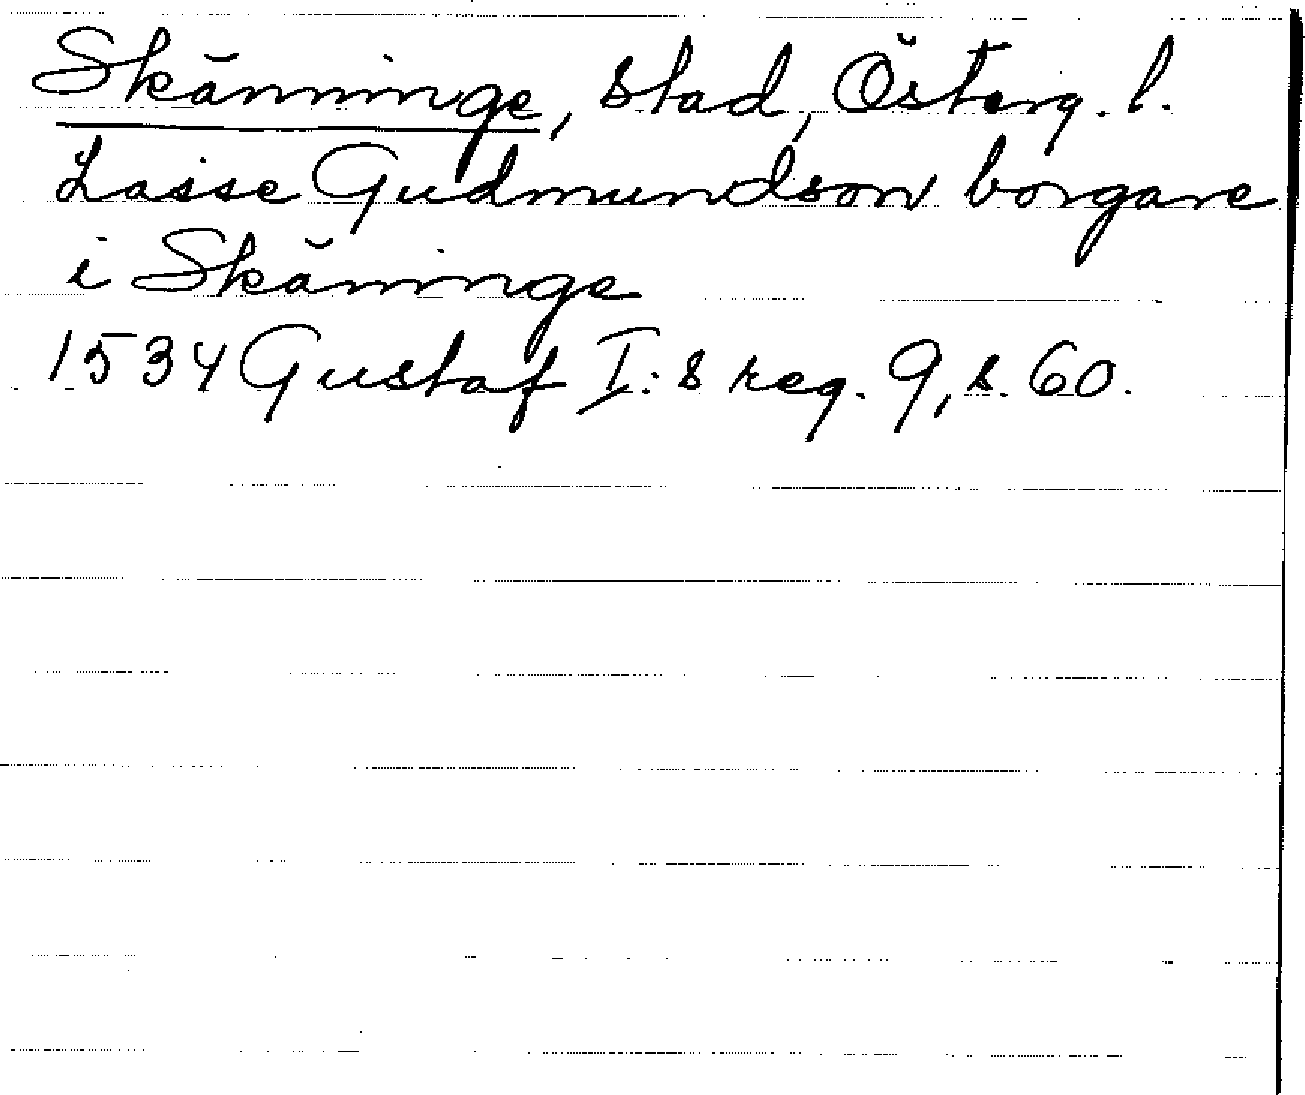 Skänninge, stad, Österg. l.
Lasse Gudmundson borgare
i Skäninge
1534 Gustaf I:s reg. 9, s. 60.